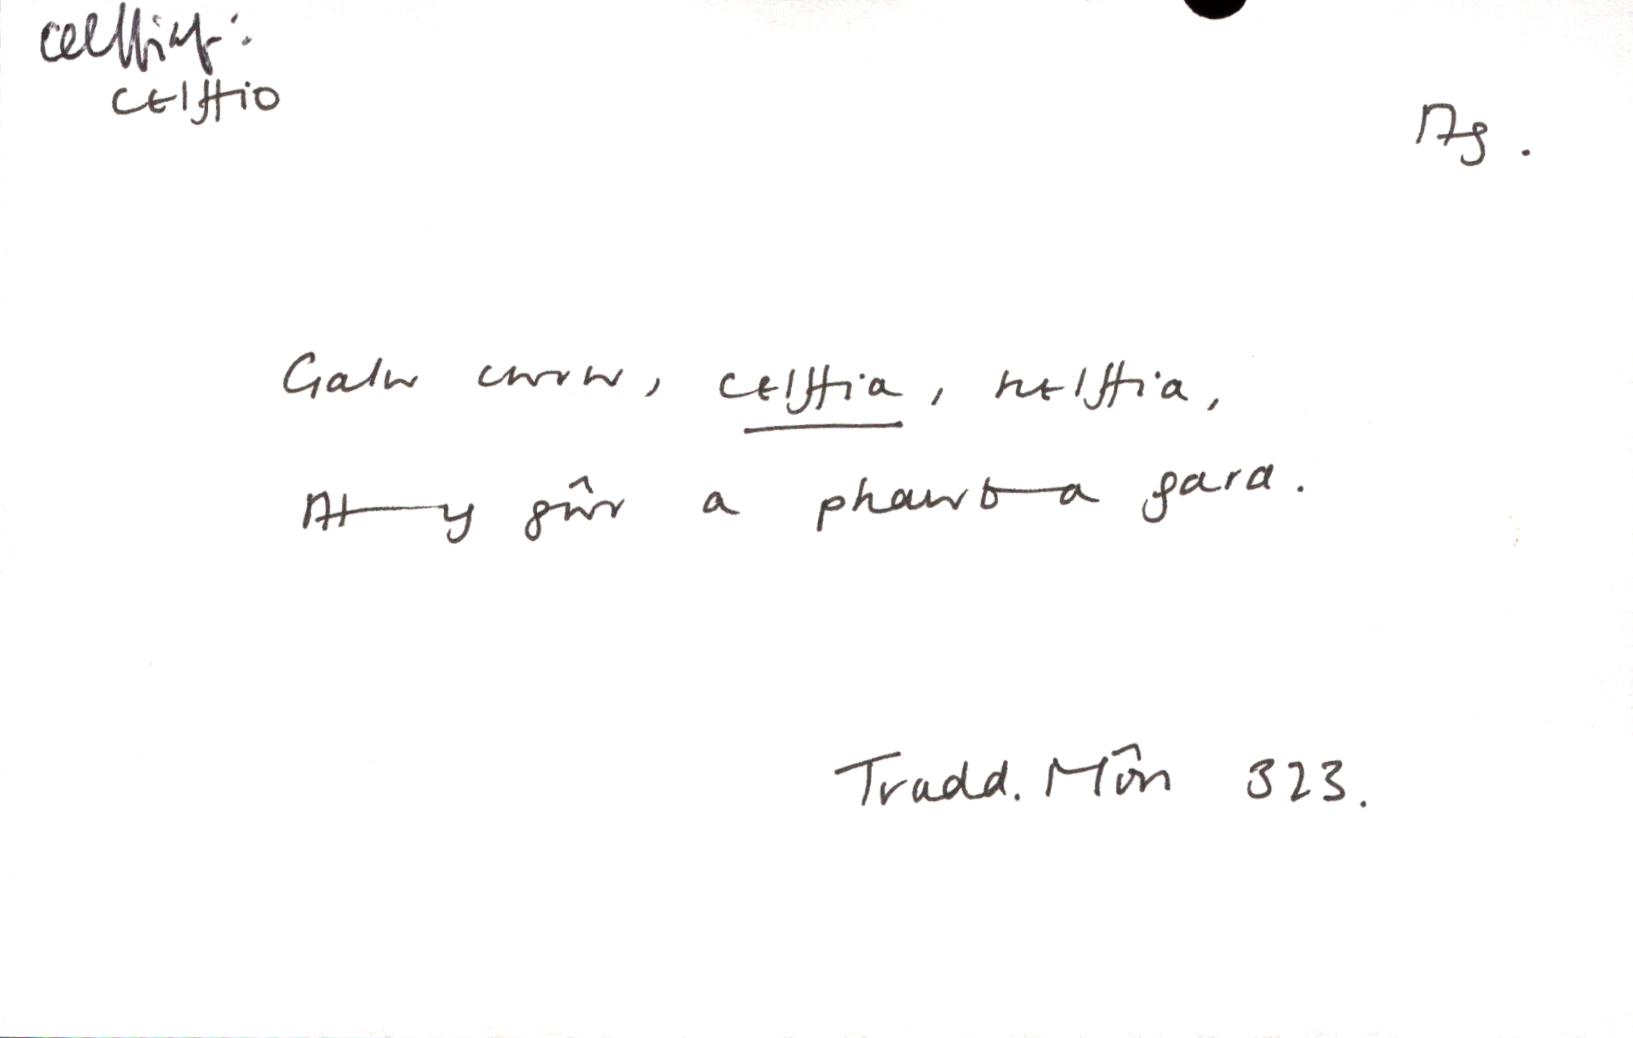 celffiaf:
celffio
Ag.
Galw cwrw, celffia, helffia,
At y gŵr a phawb a gara.
Tradd. Môn 323.